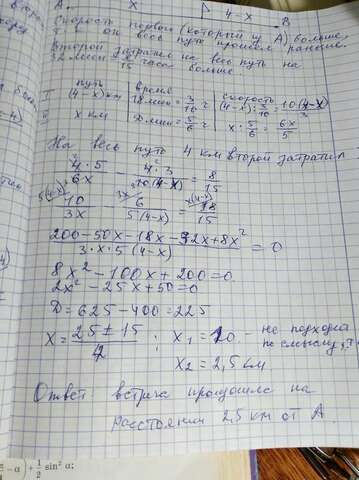 A. X D 4-x B
Скорость первой (который из A) больше,
т. к он весь путь прошел раньше.
Второй затратил на весь путь на
32 мин = 8/15 часа больше.
путь | время | скорость
I (4-x) км | 18 мин = 3/10 ч | (4-x) : 3/10 = 10(4-x)/3
II x км | 50 мин = 5/6 ч | x : 5/6 = 6x/5
На весь путь 4 км второй затратил
4·5/6x - 4·3/10(4-x) = 8/15
10/3x - 6/5(4-x) = 8/15
200-50x-18x-32x+8x²/3·x·5(4-x) = 0
8x²-100x+200=0
2x²-25x+50=0
D=625-400=225
x = 25±15/4 ; x₁=10 - не подходит
по смыслу,
x₂=2,5 км
Ответ встреча произошла на
расстоянии 2,5 км от A.
-α) + 1/2 sin² α;